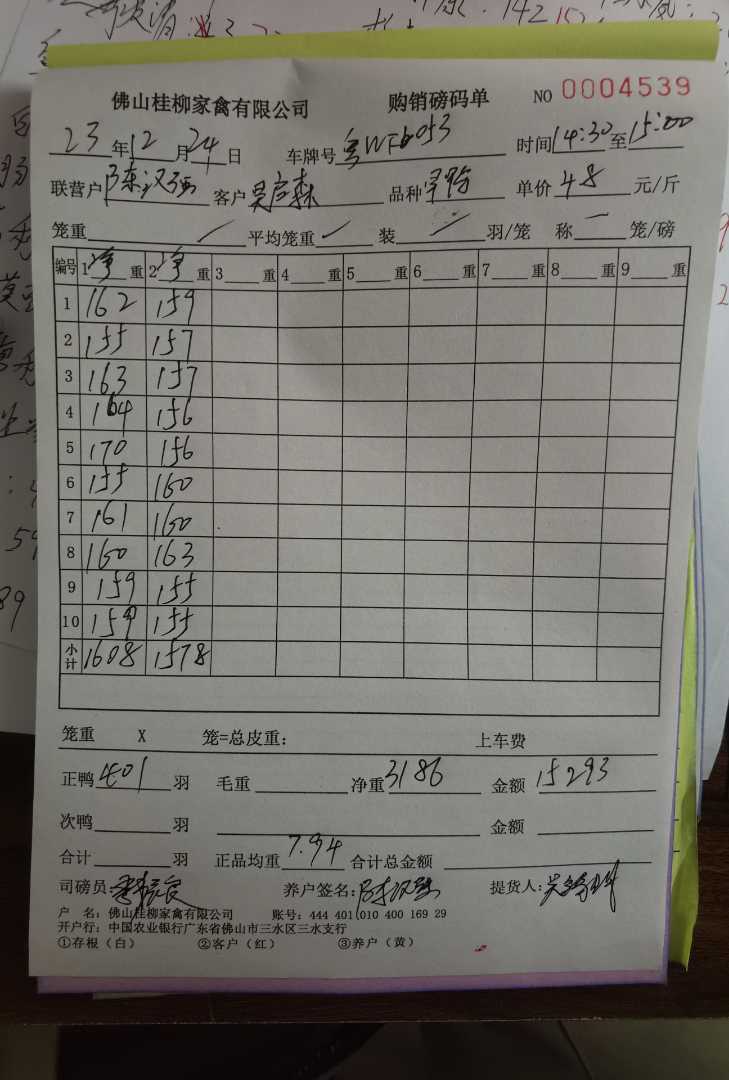 佛山桂柳家禽有限公司 购销磅码单 NO 0004539
23年12月24日 车牌号粤WF6053 时间14:30至15:00
联营户陈汉强 客户 品种 单价4.8元/斤
笼重 平均笼重 装 羽/笼 称一笼/磅
编号 1净重 2净重 3重 4重 5重 6重 7重 8重 9重
1 162 159
2 155 157
3 163 157
4 164 156
5 170 156
6 155 160
7 161 160
8 160 163
9 159 155
10 159 155
小计 1608 1578
笼重 X 笼=总皮重: 上车费
正鸭401羽 毛重 净重3186 金额15293
次鸭 羽 金额
合计 羽 正品均重7.94 合计总金额
司磅员: 养户签名:陈汉强 提货人:
户 名:佛山桂柳家禽有限公司 账号:444 401 010 400 169 29
开户行:中国农业银行广东省佛山市三水区三水支行
①存根(白) ②客户(红) ③养户(黄)